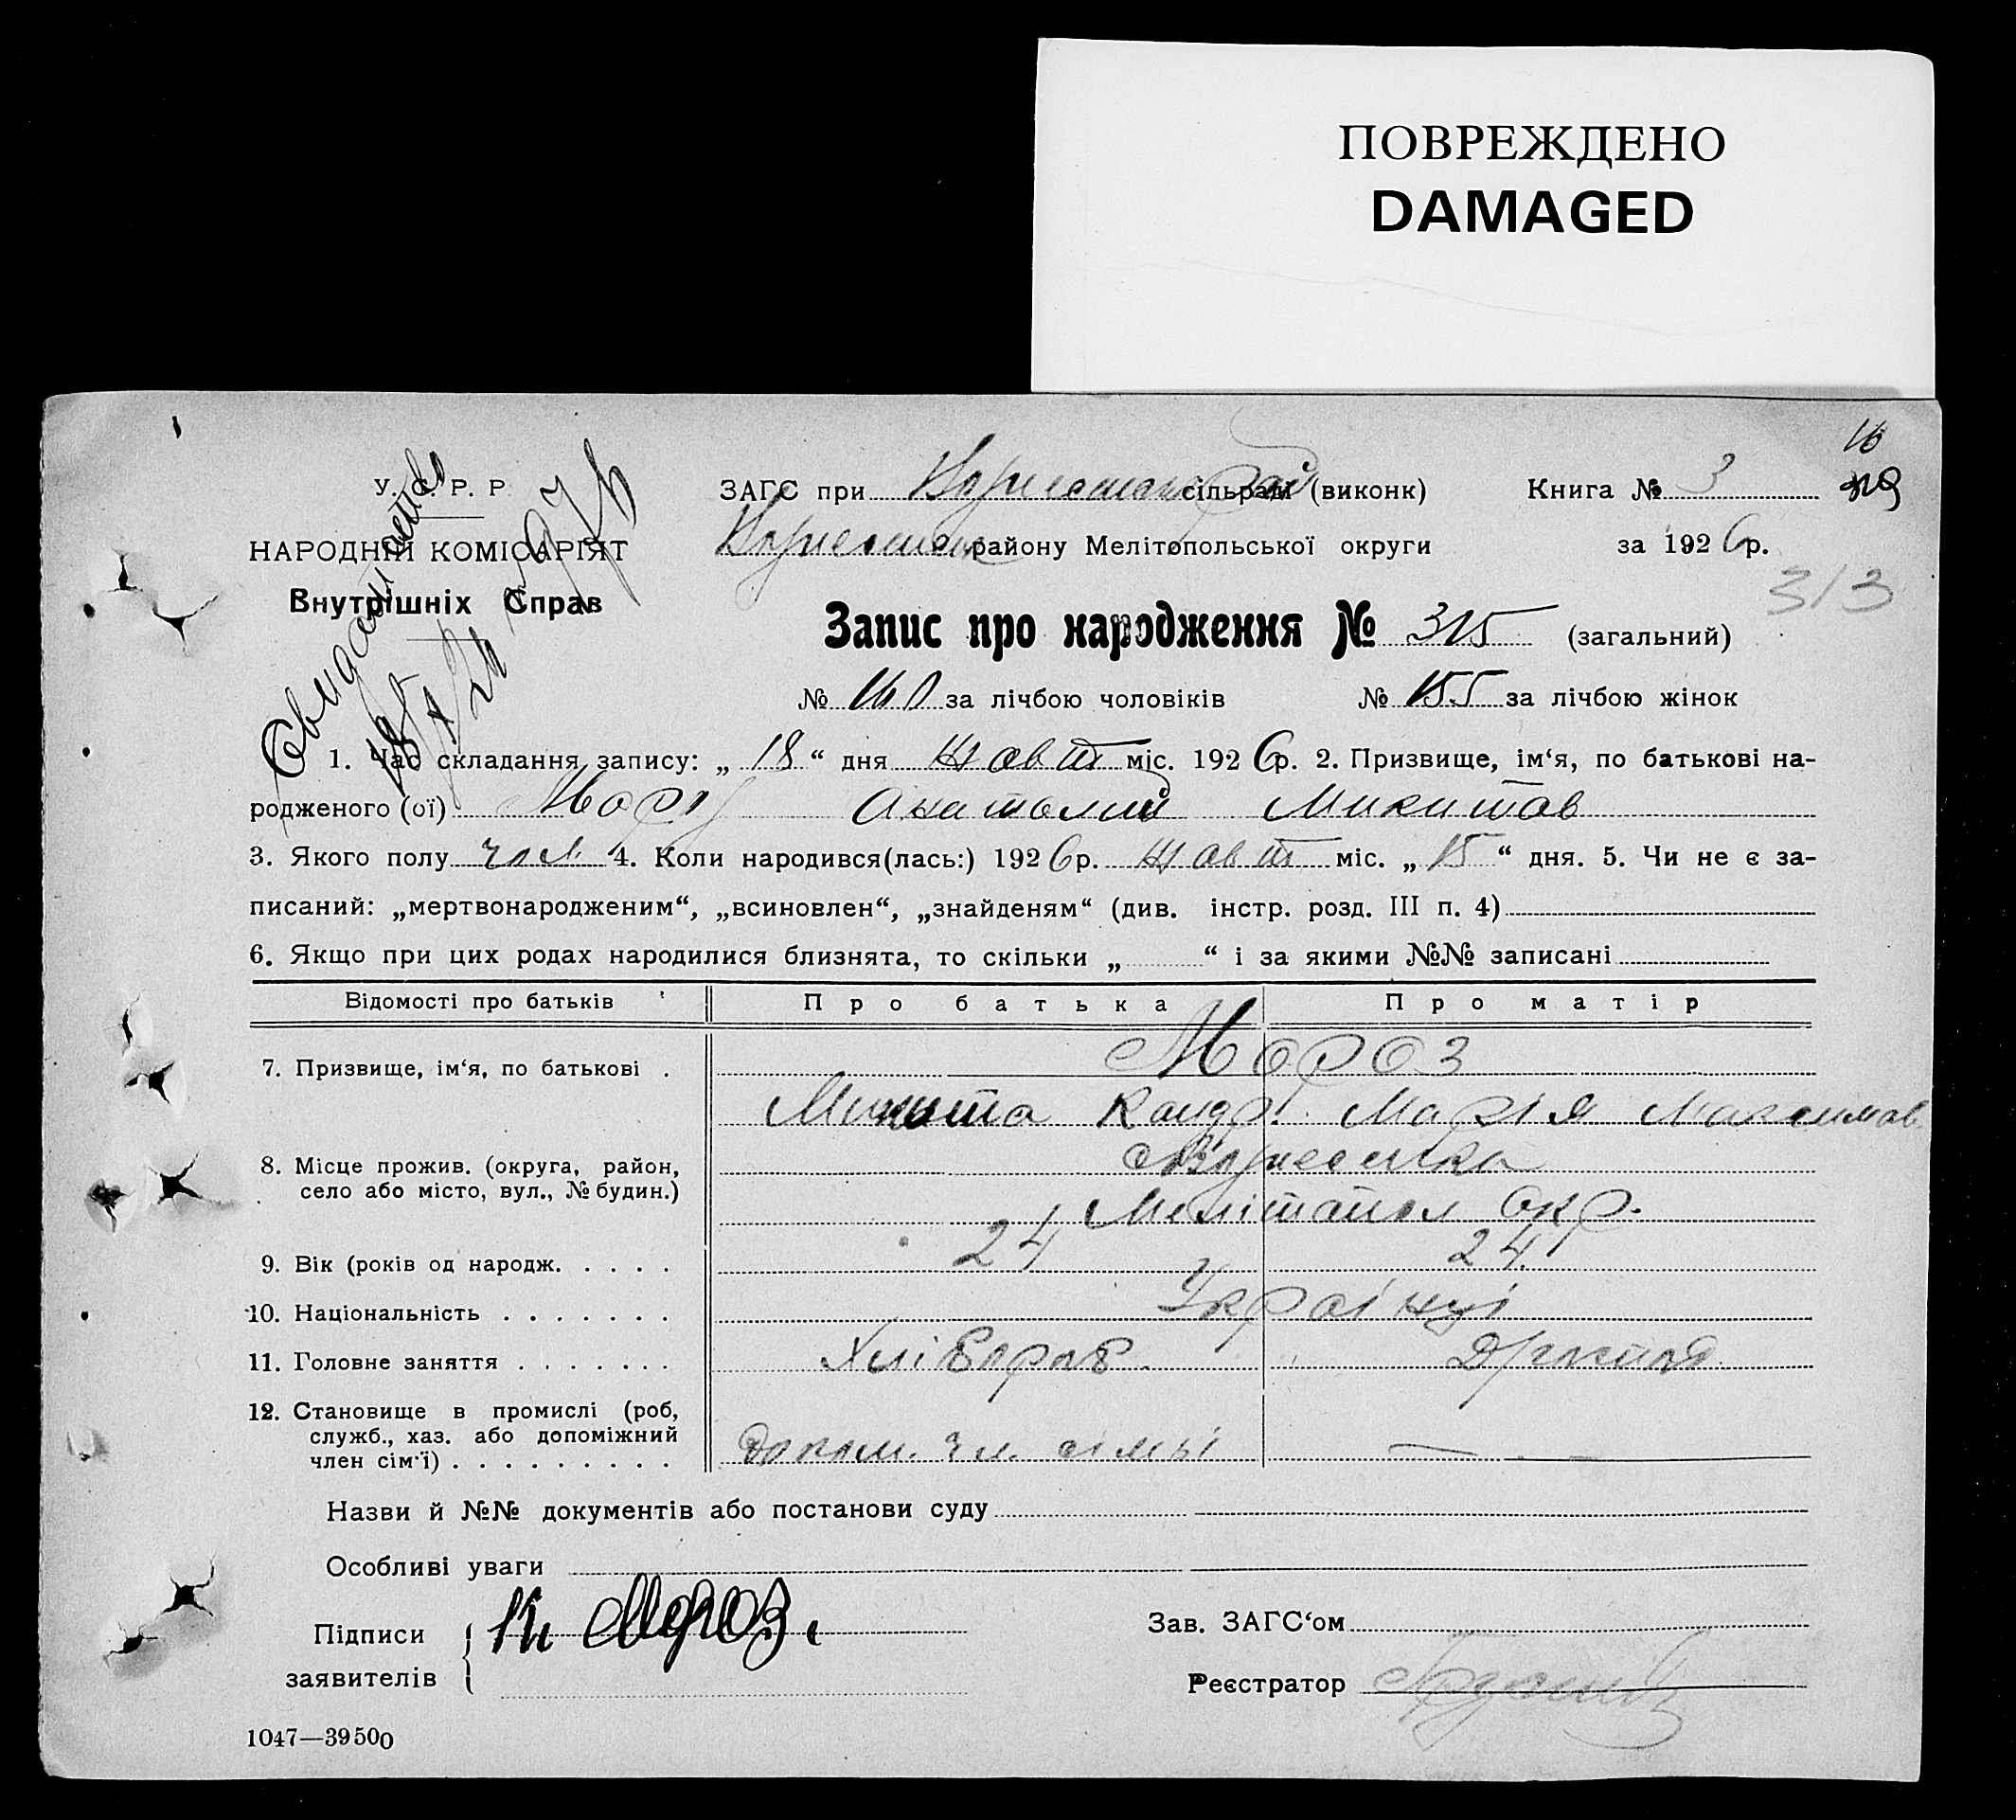 ПОВРЕЖДЕНО
DAMAGED
16
У. С. Р. Р.
НАРОДНІЙ КОМІСАРІЯТ
Внутрішніх Справ
ЗАГС при сільрам (виконк) Книга № 3
району Мелітопольської округи за 1926р.
313
Запис про народження № 315 (загальний)
№ 160 за лічбою чоловіків № 155 за лічбою жінок
1. Час складання запису: „ 18 “ дня жовт міс. 1926р. 2. Призвище, ім‘я, по батькові на-
родженого (ої) Мороз Анатолий Микитов
3. Якого полу чол. 4. Коли народився(лась:) 1926р. жовт міс. „ 15 “ дня. 5. Чи не є за-
писаний: „мертвонародженим“, „всиновлен“, „знайденям“ (див. інстр. розд. III п. 4)
6. Якщо при цих родах народилися близнята, то скільки „ “ і за якими №№ записані
Відомості про батьків Про батька Про матір
7. Призвище, ім‘я, по батькові . Мороз
Микита Кондр. Марія Максимов
8. Місце прожив. (округа, район, Вознесенка
село або місто, вул., № будин.)
Мелітопол окр.
9. Вік (років од народж. . . . . 24 24
10. Національність . . . . . . . Українці
11. Головне заняття . . . . . . . Хлібороб.
12. Становище в промислі (роб,
служб., хаз. або допоміжний
член сім‘ї) . . . . . . . . . Допом. чл. сімьі —
Назви й №№ документів або постанови суду
Особливі уваги
Підписи Мороз Зав. ЗАГС‘ом
заявителів Реєстратор
1047—39500